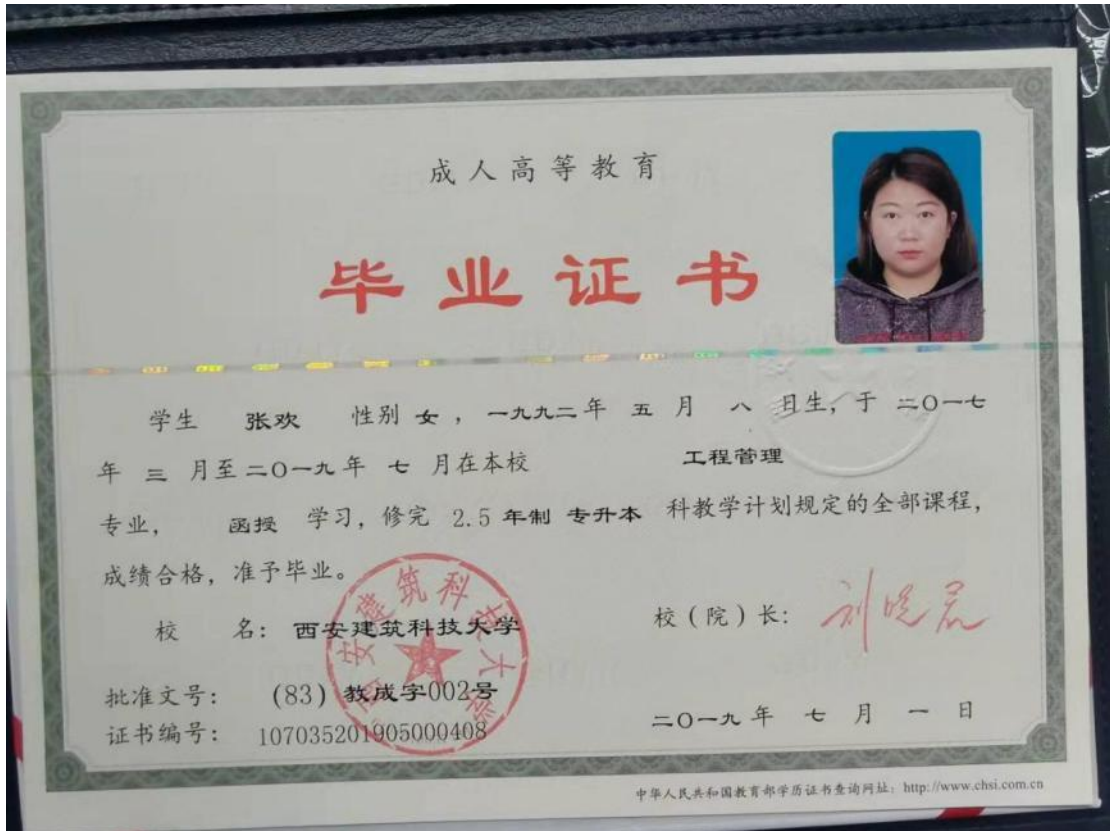 成人高等教育
毕业证书
学生 张欢 性别 女，一九九二年 五 月 八 日生，于 二〇一七
年 三 月至二〇一九年 七 月在本校 工程管理
专业， 函授 学习，修完 2.5 年制 专升本 科教学计划规定的全部课程，
成绩合格，准予毕业。
校 名：西安建筑科技大学 校（院）长：刘晓君
西安建筑科技大学
批准文号：(83)教成字002号
证书编号：107035201905000408 二〇一九年 七 月 一 日
中华人民共和国教育部学历证书查询网址：http://www.chsi.com.cn